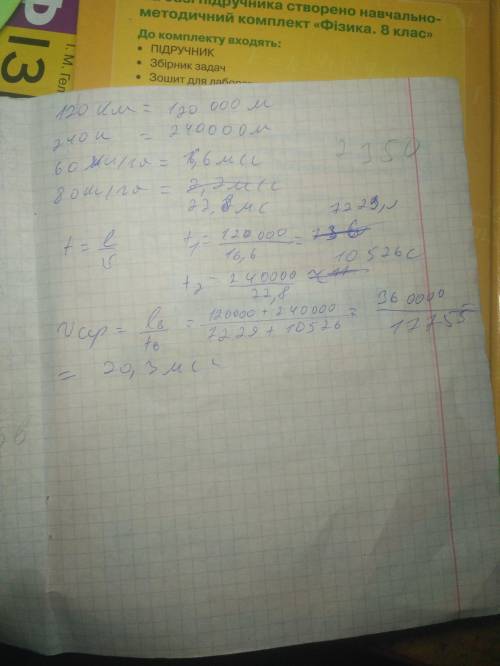 на базі підручника створено навчально-
методичний комплект «Фізика. 8 клас»
До комплекту входять:
• ПІДРУЧНИК
• Збірник задач
• Зошит для лабора
ФІЗ
І. М. Гел
120 км = 120 000 м
240 к = 240000 м
60 км/го = 16,6 м/с
80 км/го =
22,8 мс
2350
t = l/v
t₁ = 120 000/16,6 = 7229 с
t₂ = 240000/22,8 10526 с
Vср = l₀/t₀ = 120000 + 240000/7229 + 10526 = 360000/17755 =
= 20,3 мс